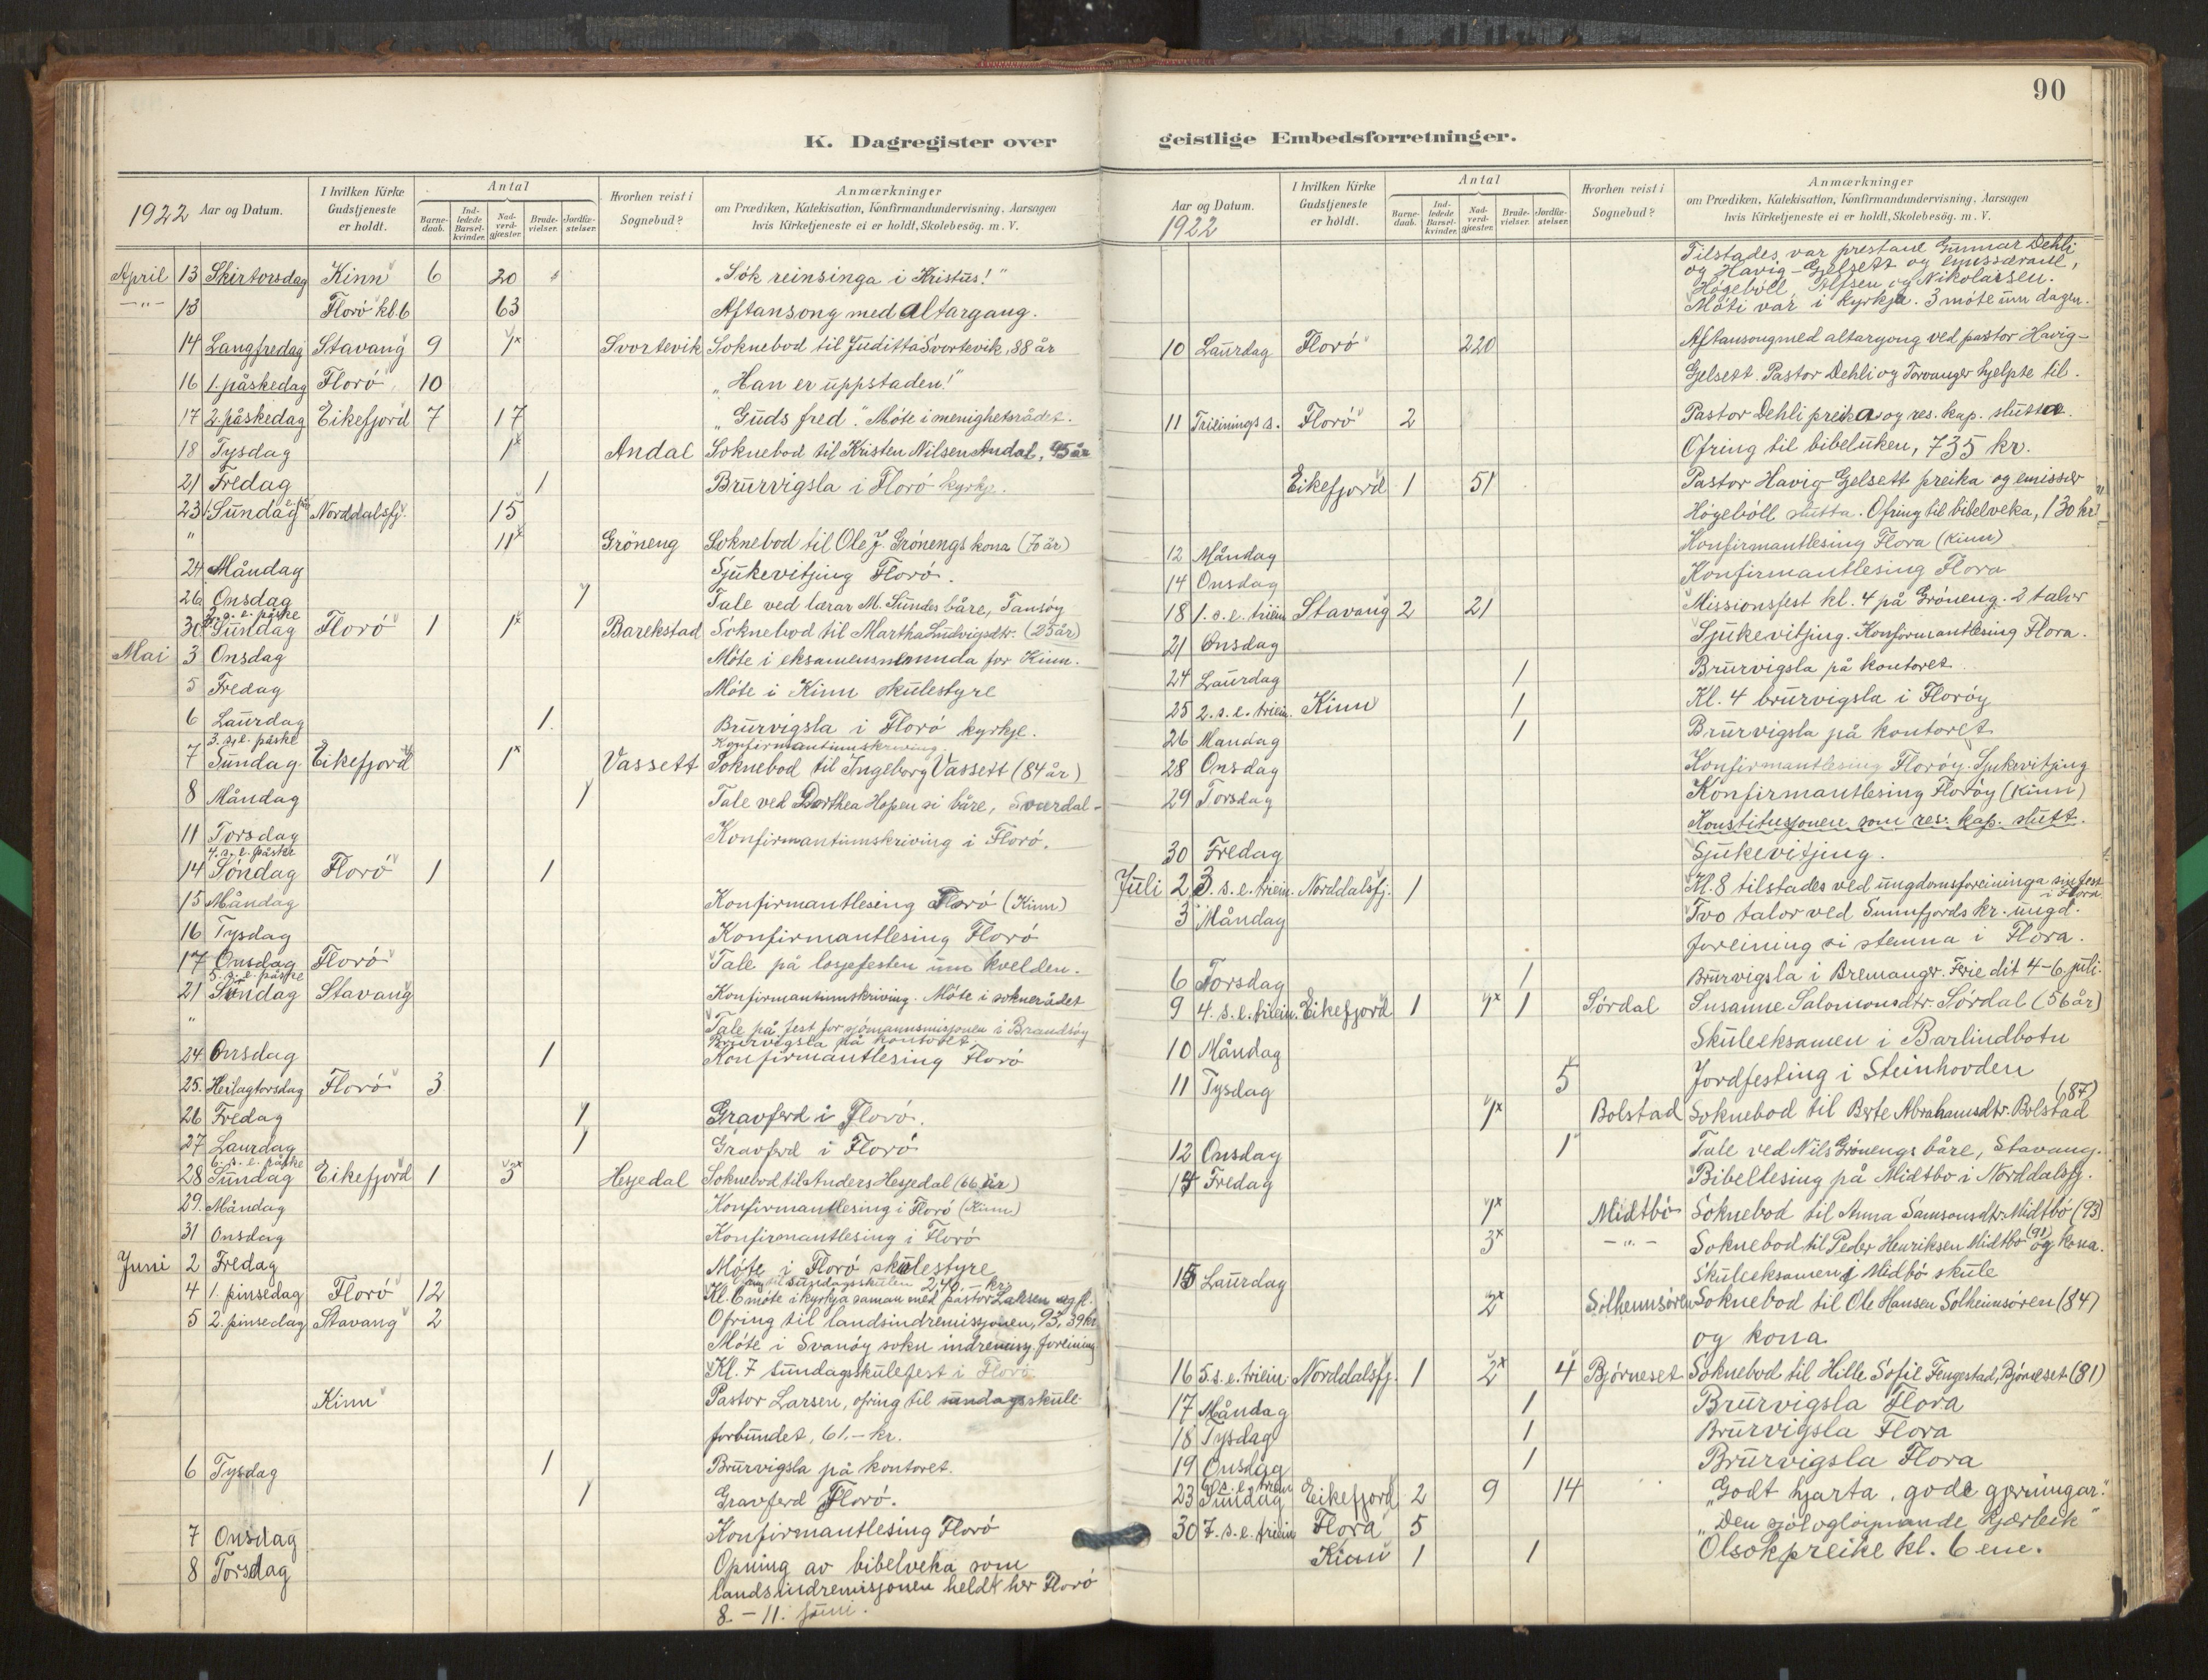 90
K. Dagregister over
geistlige Embedsforretninger.
1922 Aar og Datum.
I hvilken Kirke Gudstjeneste er holdt.
Antal
Barne-daab.
Ind-ledede Barsel-kvinder.
Nad-verd-gjæster.
Brude-vielser.
Jordfæ-stelser.
Hvorhen reist i Sognebud?
Anmærkninger
om Prædiken, Katekisation, Konfirmandundervisning. Aarsagen
hvis Kirketjeneste ei er holdt, Skolebesög. m. V.
April 13 Skirtorsdag Kinn 6 20 „Søk reinsinga i Kristus!"
–"– 13 Florö kl. 6 63 Aftansong med altargang.
14 Langfredag Stavang 9 1x Svortevik Soknebod til Juditta Svortevik, 88 år
16 1. påskedag Florö 10 „Han er uppstaden!"
17 2. påskedag Eikefjord 7 17 „Guds fred." Möte i menighetsrådet.
18 Tysdag 1x Andal Soknebod til Kristen Nilsen Andal, 95 år
21 Fredag 1 Brurvigsla i Florö kyrkje.
23 1. Sundag Norddalsfj. 15
" 11x Gröneng Soknebod til Ole J. Grönengs kona (70 år)
24 Måndag Sjukevitjing Florö.
26 Onsdag 1 Tale ved lærar M. Sundes båre, Tansöy
2. s. e. påske
30 Sundag Florö 1 1x Barekstad Soknebod til Martha Ludvigsdtr. (25 år)
Mai 3 Onsdag Möte i eksamensnemnda for Kinn.
5 Fredag Möte i Kinn skulestyre
6 Laurdag 1 Brurvigsla i Florö kyrkje.
3. s. e. påske Konfirmantumskriving.
7 Sundag Eikefjord 1x Vassett Soknebod til Ingeborg Vassett (84 år)
8 Måndag 1 Tale ved Dorthea Hopen si båre,
11 Torsdag Konfirmantumskriving i Florö.
4. s. e. påske
14 Söndag Florö 1 1
15 Måndag Konfirmantlesing Florö (Kinn)
16 Tysdag Konfirmantlesing Florö
17 Onsdag Florö Tale på losjefesten um kvelden.
5. s. e. påske
21 Sundag Stavang Konfirmantumskriving. Möte i soknerådet
" Tale på fest for sjömannsmisjonen i Brandsöy
Brurvigsla på kontoret.
24 Onsdag 1 Konfirmantlesing Florö
25. Heilagtorsdag Florö 3
26 Fredag 1 Gravferd i Florö.
27 Laurdag 1 Gravferd i Florö
6. s. e. påske
28 Sundag Eikefjord 1 3x Hesjedal Soknebod til Anders Hesjedal (66 år)
29. Måndag Konfirmantlesing i Florö (Kinn)
31 Onsdag Konfirmantlesing i Florö
Juni 2 Fredag Möte i Florö skulestyre
til sundagsskulen 240,– kr.
4 1. pinsedag Florö 12 Kl. 6 möte i kyrkja saman med pastor Larsen og fl.
5 2. pinsedag Stavang 2 Ofring til landsindremissjonen, 93,39 kr
Möte i Svanöy sokn indremisj. foreining
Kl. 7 sundagsskulefest i Florö
Kinn Pastor Larsen, ofring til sundagsskule-
forbundet, 61.– kr.
6 Tysdag 1 Brurvigsla på kontoret.
1 Gravferd Florö.
7 Onsdag Konfirmantlesing Florö
8 Torsdag Opning av bibelveka som
landsindremisjonen heldt her Florö
8. – 11. juni.
Aar og Datum.
1922
I hvilken Kirke Gudstjeneste er holdt.
Antal
Barne-daab.
Ind-ledede Barsel-kvinder.
Nad-verd-gjæster.
Brude-vielser.
Jordfæ-stelser.
Hvorhen reist i Sognebud?
Anmærkninger
om Prædiken, Katekisation, Konfirmandundervisning. Aarsagen
hvis Kirketjeneste ei er holdt, Skolebesög. m. V.
Tilstades var prestane Gunnar Dehli
og Havig-Gjelsett og emissærane,
Högeböll, Alfsen og Nikolaisen.
Möti var i kyrkja. 3 möte um dagen.
10 Laurdag Florö 220 Aftansong med altargong ved pastor Havig-
Gjelsett. Pastor Dehli og Torvanger hjelpte til.
11 Trieinings s. Florö 2 Pastor Dehli preika og res. kap. slutta.
Ofring til bibeluken, 735 kr.
Eikefjord 1 51 Pastor Havig-Gjelsett preika og emissær
Högeböll slutta. Ofring til bibelveka, 130 kr.
12 Måndag Konfirmantlesing Flora (Kinn)
14 Onsdag Konfirmantlesing Flora
18 1. s. e. triein. Stavang 2 21 Missionsfest kl. 4 på Gröneng. 2 talor
21 Onsdag Sjukevitjing. Konfirmantlesing Flora.
24 Laurdag 1 Brurvigsla på kontoret.
25 2. s. e. triein. Kinn 1 Kl. 4 brurvigsla i Floröy
26 Mandag 1 Brurvigsla på kontoret
28 Onsdag Konfirmantlesing Floröy. Sjukevitjing
29 Torsdag Konfirmantlesing Floröy (Kinn)
Konstitusjonen som res. kap. slutt.
30 Fredag Sjukevitjing.
Juli 2 3. s. e. triein. Norddalsfj. 1 Kl. 8 tilstades ved ungdomsforeininga sin fest
i Flora
3 Måndag Tvo talor ved Sunnfjords kr. ungd.
foreining si stemna i Flora.
6 Torsdag 1 Brurvigsla i Bremanger. Ferie dit 4–6 juli.
9 4. s. e. triein. Eikefjord 1 1x 1 Sördal Susanne Salomonsdtr. Sördal (56 år)
10 Måndag Skuleeksamen i Barlindbotn
11 Tysdag 5 Jordfesting i Steinhovden
(87)
1x Bolstad Soknebod til Berte Abrahamsdtr. Bolstad
12 Onsdag 1 Tale ved Nils Grönengs båre, Stavang.
14 Fredag Bibellesing på Midtbö i Norddalsfj.
1x Midtbö Soknebod til Anna Samsonsdtr. Midtbö (93)
3x –"– Soknebod til Peder Henriksen Midtbö (91) og kona.
15 Laurdag Skuleeksamen i Midbö skule
2x Solheimsören Soknebod til Ole Hansen Solheimsören (84)
og kona
16 5. s. e. triein. Norddalsfj. 1 2x 4 Björneset Soknebod til Hille Sofie Fengestad, Björneset (81)
17 Måndag 1 Brurvigsla Flora
18 Tysdag 1 Brurvigsla Flora
19 Onsdag 1 Brurvigsla Flora
6. s. e. triein
23 Sundag Eikefjord 2 9 14 „Godt hjarta, gode gjerningar."
30 7. s. e. triein Flora 5 „Den sjölvgløymande kjærleik"
Kinn 1 1 Olsokpreike kl. 6 em.